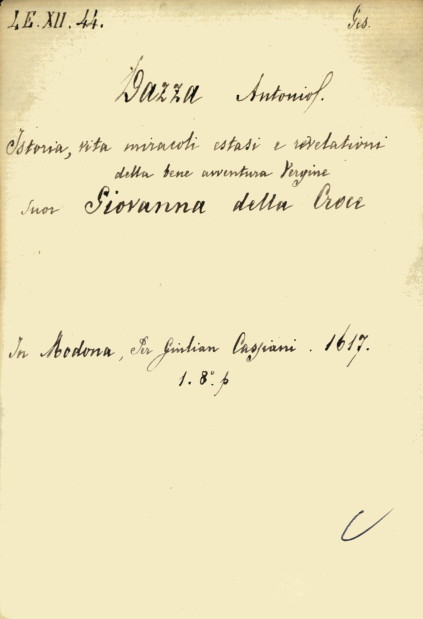 LE.XII.44. Ges.
Dazza Antonio f.
Istoria, vita miracoli estasi e revelationi
della bene avventura Vergine
Suor Giovanna della Croce
In Modona, Per Giulian Cassiani. 1617.
1. 8º. p